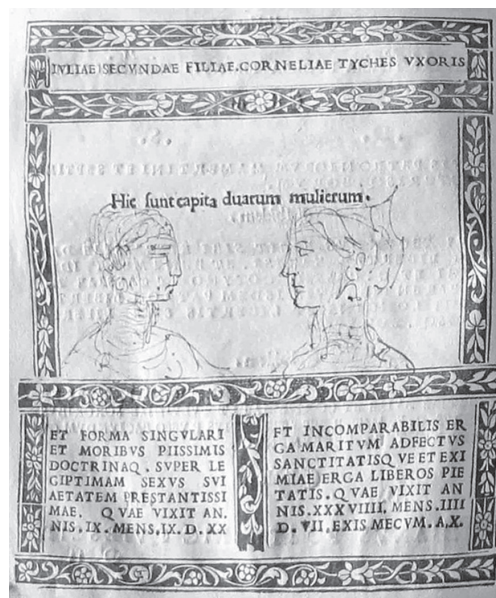 IVLIAE SECVNDAE FILIAE.CORNELIAE TYCHES VXORIS
Hic sunt capita duarum mulierum.
ET FORMA SINGVLARI
ET MORIBVS PIISSIMIS
DOCTRINAQ. SVPER LE
GIPTIMAM SEXVS SVI
AETATEM PRESTANTISSI
MAE. QVAE VIXIT AN
NIS.IX.MENS.IX.D.XX
ET INCOMPARABILIS ER
GA MARITVM ADFECTVS
SANCTITATISQVE ET EXI
MIAE ERGA LIBEROS PIE
TATIS.QVAE VIXIT AN
NIS.XXXVIIII.MENS.IIII
D.VII.EXIS MECVM.A.X.